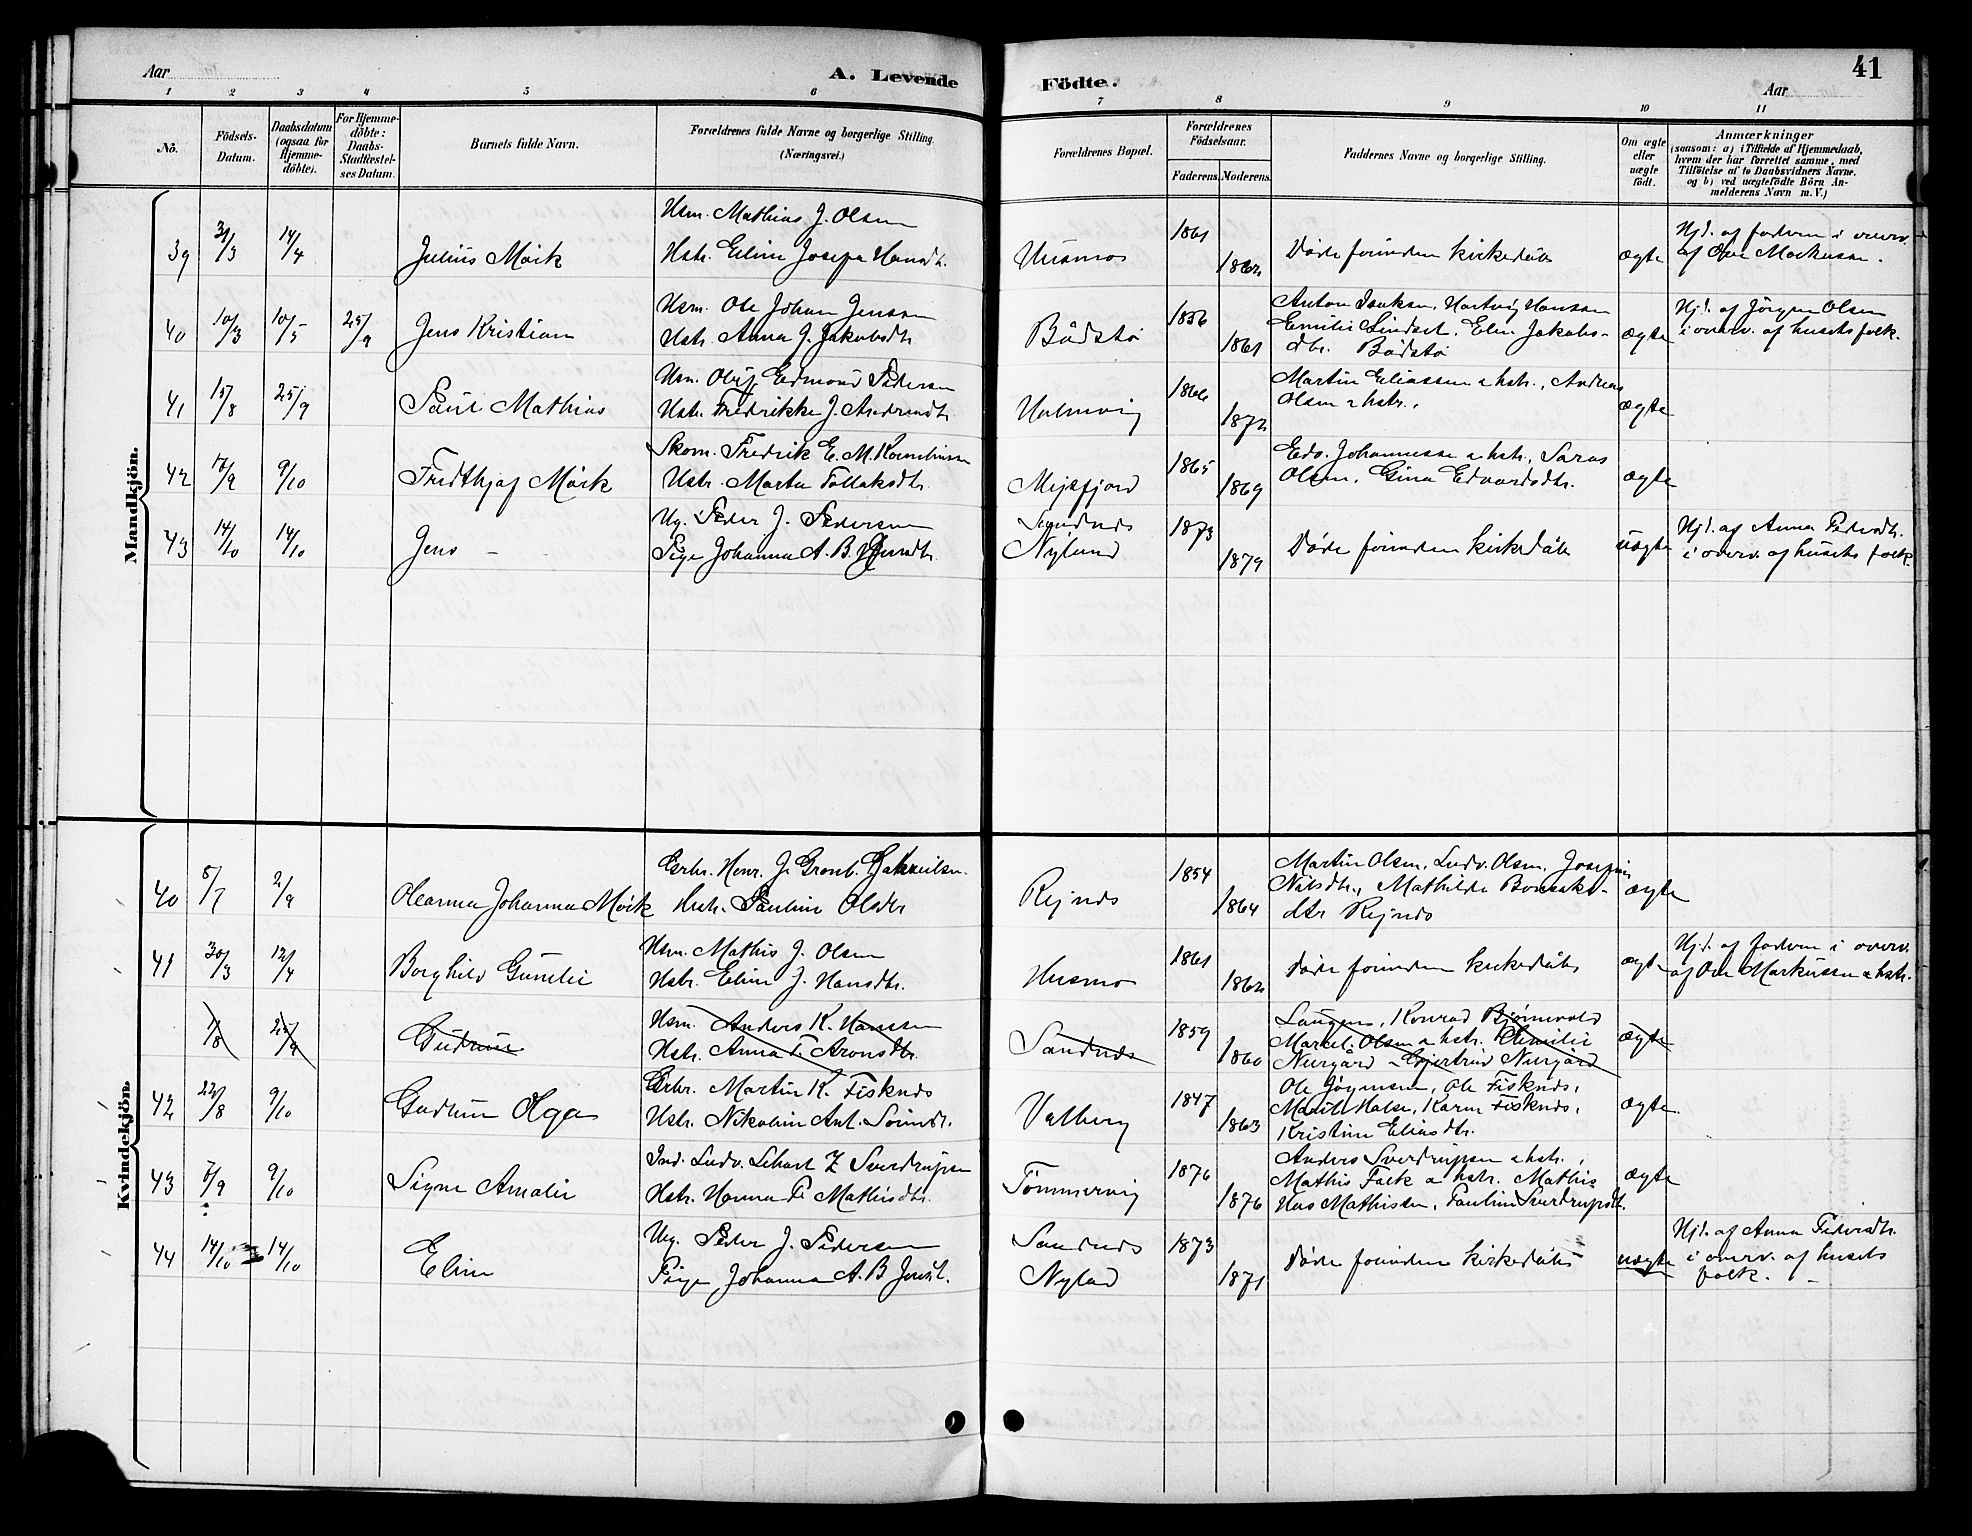 Aar
A. Levende
Födte.
41
Aar
1 2 3 4 5 6 7 8 9 10 11
No.
Födsels-
Datum.
Daabsdatum
(ogsaa for
Hjemme-
döbte).
For Hjemme-
döbte:
Daabs-
Stadfæstel-
ses Datum.
Barnets fulde Navn.
Forældrenes fulde Navne og borgerlige Stilling.
(Næringsvei.)
Forældrenes Bopæl.
Forældrenes
Födselsaar.
Faderens. Moderens.
Faddernes Navne og borgerlige Stilling.
Om ægte
eller
uægte
födt.
Anmærkninger
(saasom: a) i Tilfælde af Hjemmedaab,
hvem der har forrettet samme, med
Tilföielse af to Daabsvidners Navne.
og b) ved uægtefödte Börn An-
melderens Navn m. V.)
Mandkjön.
39 31/3 14/4 Julius Mörk
Hsm. Mathias J. Olsen
Hstr. Eline Josefa Hansdtr.
Husmo 1861 1862
Döde forinden kirkedåb ægte
Hjd. af faderen i overv.
af Ole Markussen.
40 10/3 10/5 25/9 Jens Kristian
Hsm. Ole Johan Jensen
Hstr. Anna J. Jakobsdtr.
Bådstö 1856 1861
Anton Isaksen, Hartvig Hanssen
Emilie Lindset, Elen Jakobs-
dtr. Bådstö
ægte
Hjd. af Jörgen Olsen
i overv. af husets folk.
41 15/8 25/9 Paul Mathias
Hsm. Oluf Edmund Pedersen
Hstr. Fredrikke J. Andreasdtr.
Holmvig 1866 1872
Martin Eliassen & hstr., Andreas
Olsen & hstr.,
ægte
42 17/9 9/10 Fridthjof Mörk
Skom. Fredrik E. M.
Hstr. Marta Tollaksdtr.
Misfjord 1865 1869
Edv. Johannessen & hstr., Saras
Olsen, Gina Edvardsdtr.
ægte
43 14/10 14/10 Jens –
Ug. Peder J. Pedersen
Pige Johanna A. B. Jensdtr.
Sandnes
Nyland 1873 1879
Döde forinden kirkedåb uægte
Hjd. af Anna Pedersdtr.
i overv. af husets folk.
Kvindekjön.
40 5/7 2/9 Oleanna Johanna Mörk
Grbr. Henr. J. Gronb.
Hstr. Pauline Olsdtr
Rejnes 1854 1864
Martin Olsen, Ludv. Olsen, Josefine
Nilsdtr., Mathilde
dtr Rejnes
ægte
41 30/3 12/4 Borghild Gunelie
Hsm. Mathis J. Olsen
Hstr. Eline J. Hansdtr.
Husmo 1861 1862
Döde forinden kirkedåb ægte
Hjd. af faderen i overv.
af Ole Markussen & hstr.
1/8 25/9 Gudrun
Hsm. Anders K. Hanssen
Hstr. Anna F. Aronsdtr.
Sandnes 1859 1860
Konrad Björnvold
Marcel. Olsen & hstr.
ægte
42 22/8 9/10 Gudrun Olga
Grbr. Martin K. Fisknes
Hstr. Nikoline Ant. Sörensdtr.
Valberg 1847 1863
Ole Jögensen, Ole Fisknes,
Marit Halse, Karen Fisknes,
Kristine Eliasdtr.
ægte
43 7/9 9/10 Signe Amalie
Ind. Ludv. Z Sverdrupsen
Hstr. Hanna F. Mathisdtr.
Tömmervig 1876 1876
Anders Sverdrupsen & hstr.,
Mathis Falk & hstr. Mathis
Mathissen, Pauline Sverdrupsdtr.
ægte
44 14/10 14/10 Eline
Ug. Peder J. Pedersen
Pige Johanna A. B Jensd.
Sandnes
Nyland 1873 1871
Döde forinden kirkedåb uægte
Hjd. af Anna Pedersdtr.
i overv. af husets
folk. –